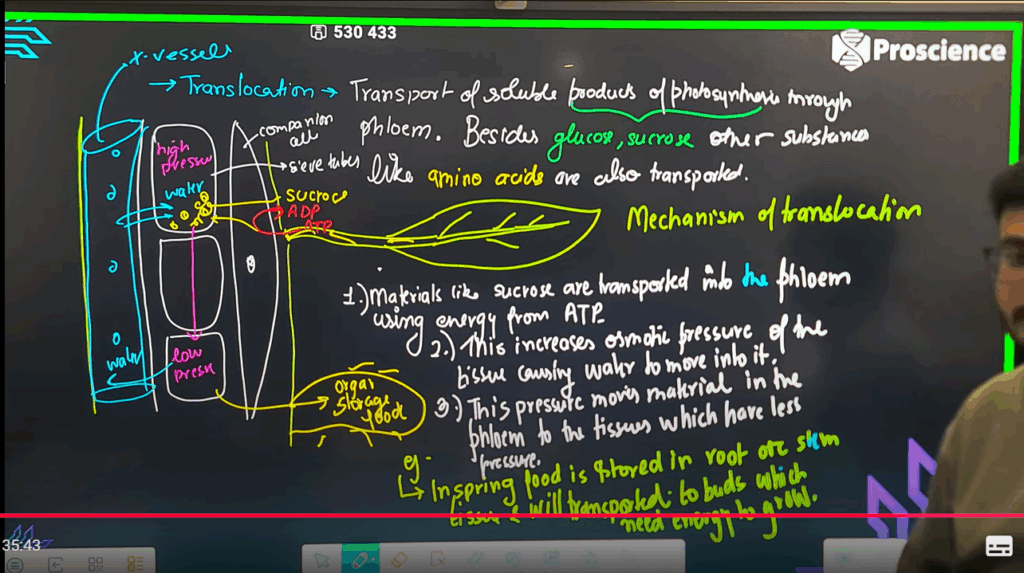 530 433
Proscience
x-vessels
→ Translocation → Transport of soluble products of photosynthesis through
phloem. Besides glucose, sucrose other substances
like amino acids are also transported.
companion
cell
sieve tubes
high
pressure
water
sucrose
ADP
ATP
Mechanism of translocation
1.) Materials like sucrose are transported into the phloem
using energy from ATP
2.) This increases osmotic pressure of the
tissue causing water to move into it.
3.) This pressure moves material in the
phloem to the tissues which have less
pressure.
water
low
press
organ
storage
food
eg.
↳ In spring food is stored in root or stem
tissue & will transported to buds which
need energy to grow.
35:43